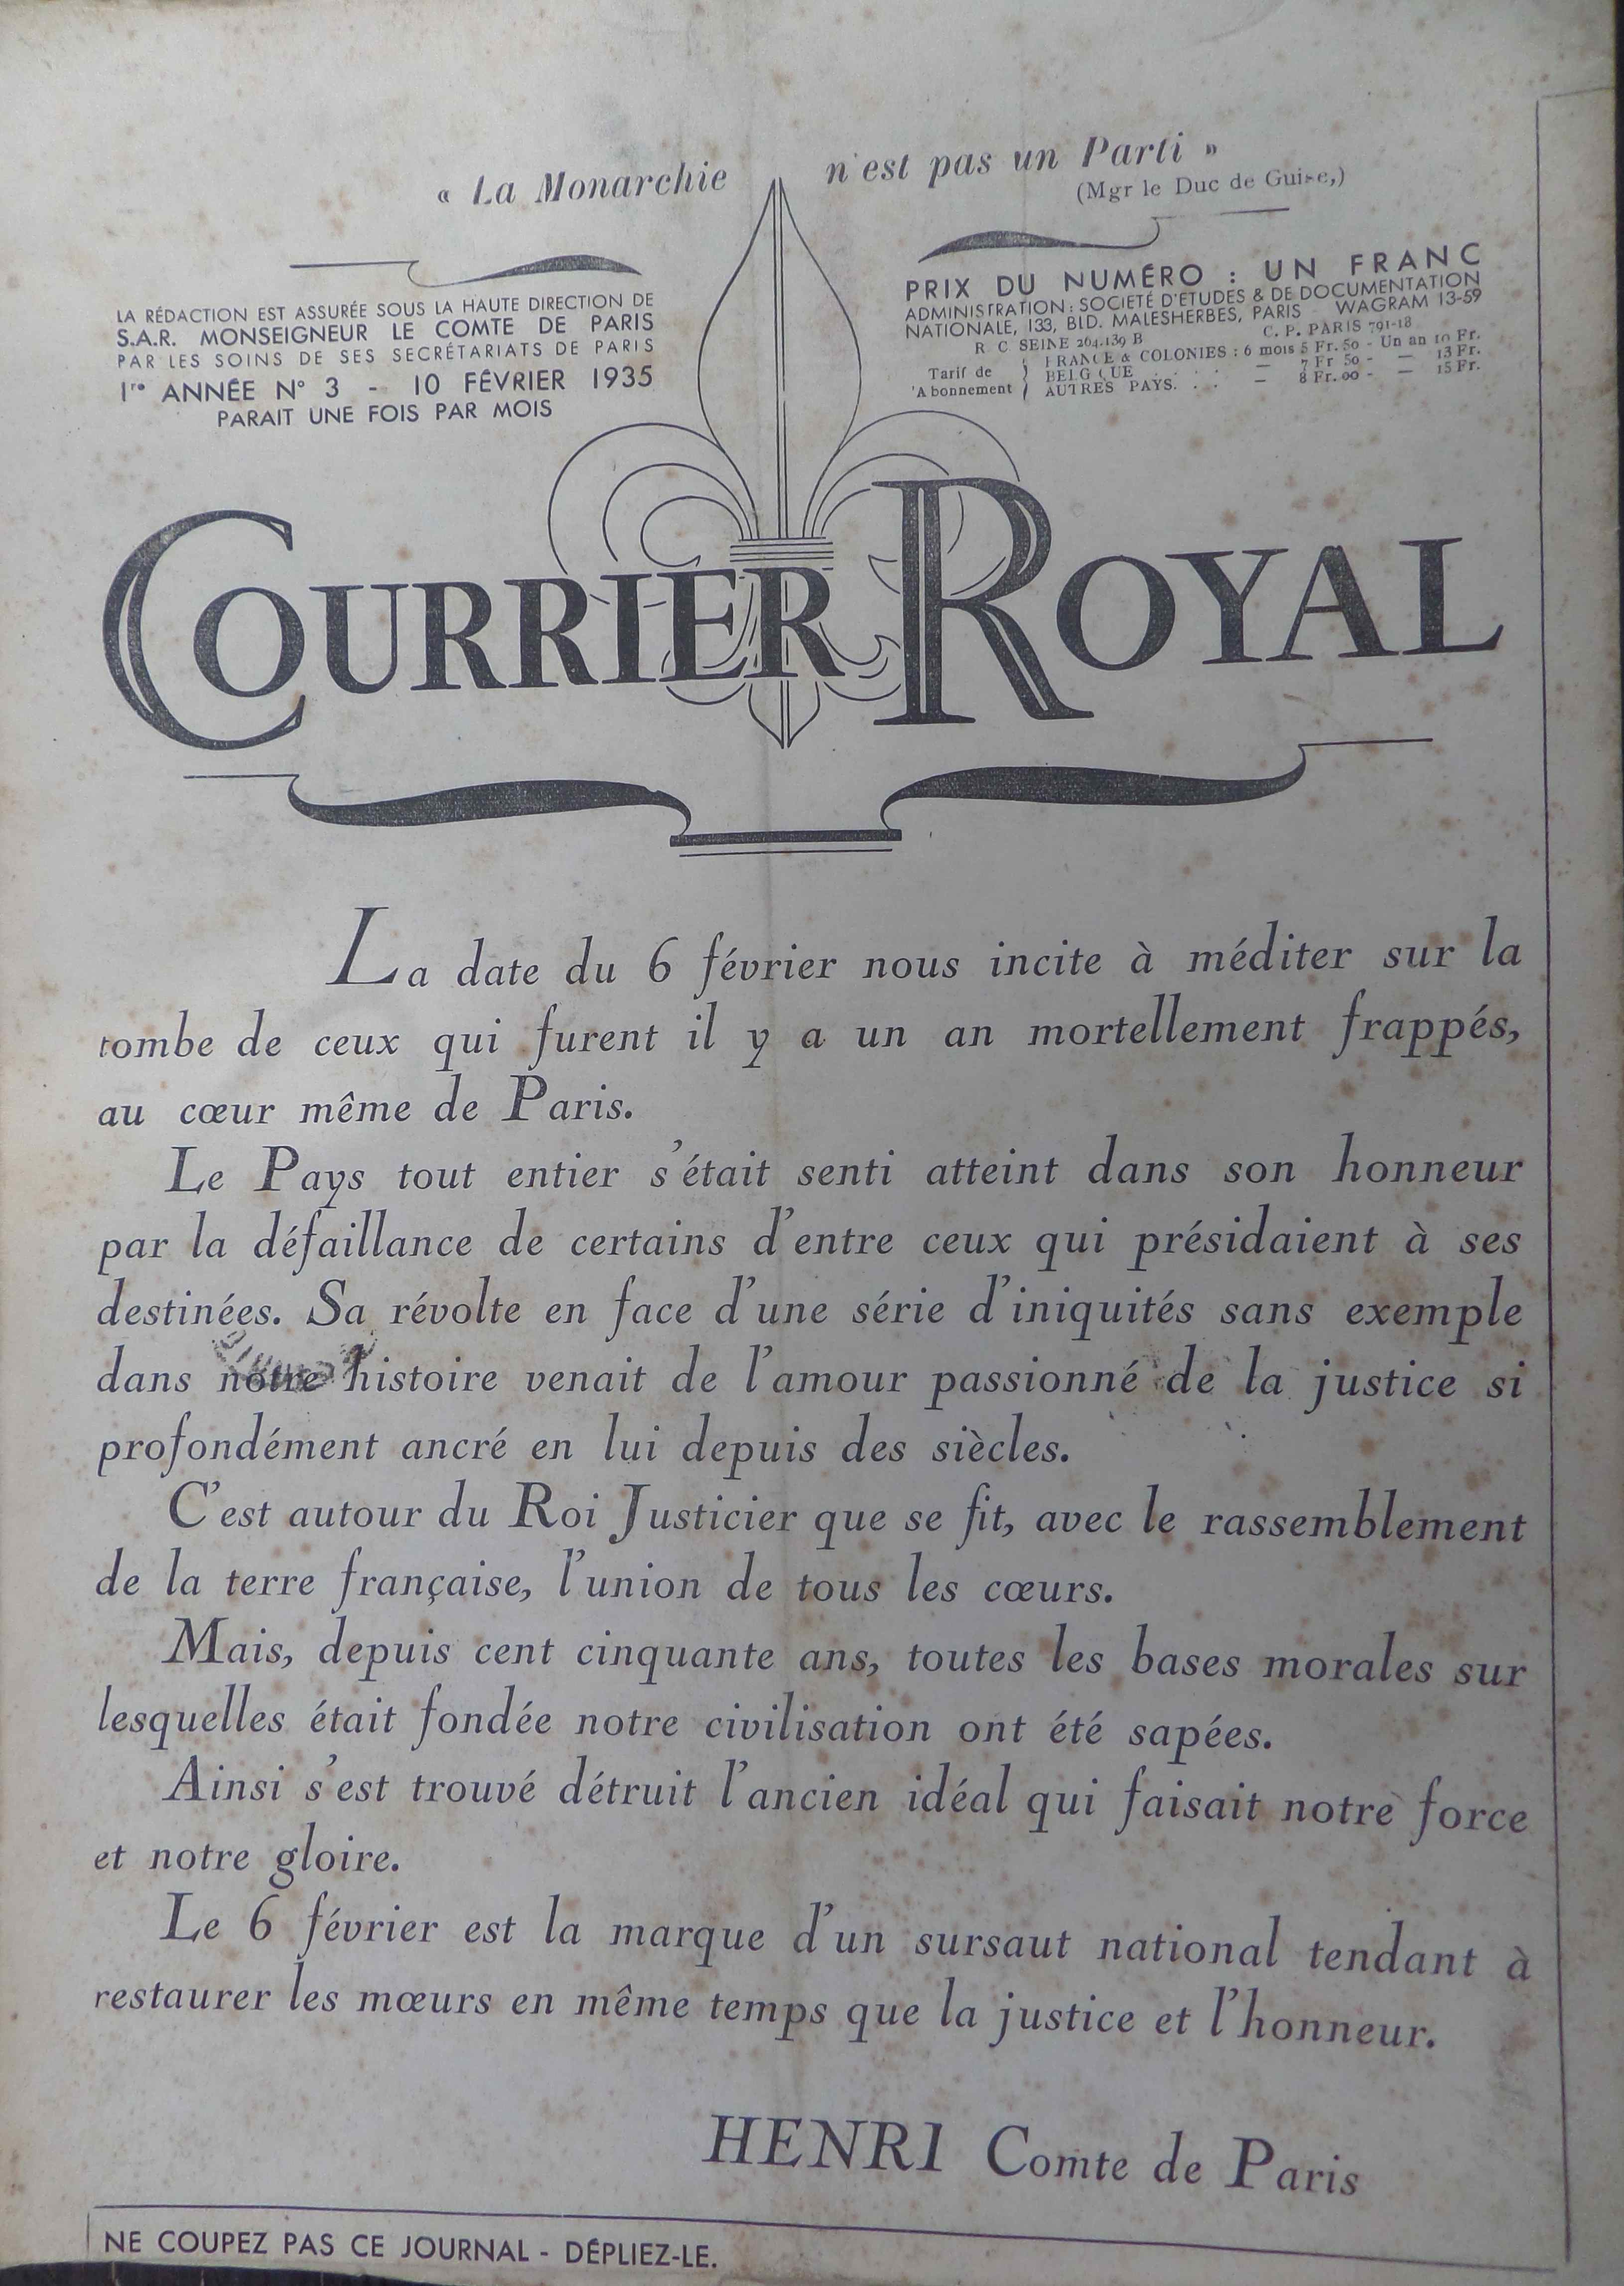 « La Monarchie n'est pas un Parti »
(Mgr le Duc de Guise,)
LA RÉDACTION EST ASSURÉE SOUS LA HAUTE DIRECTION DE
S.A.R. MONSEIGNEUR LE COMTE DE PARIS
PAR LES SOINS DE SES SECRÉTARIATS DE PARIS
1re ANNÉE N° 3 - 10 FÉVRIER 1935
PARAIT UNE FOIS PAR MOIS
PRIX DU NUMÉRO : UN FRANC
ADMINISTRATION : SOCIETÉ D'ÉTUDES & DE DOCUMENTATION
NATIONALE, 133, BLD. MALESHERBES, PARIS WAGRAM 13-59
R. C. SEINE 264.139 B C. P. PARIS 791-18
FRANCE & COLONIES : 6 mois 5 Fr. 50 - Un an 10 Fr.
Tarif de BELGIQUE . . . . — 7 Fr 50 - — 13 Fr.
'Abonnement AUTRES PAYS. . . — 8 Fr. 00 - — 15 Fr.
COURRIER ROYAL
La date du 6 février nous incite à méditer sur la
tombe de ceux qui furent il y a un an mortellement frappés,
au cœur même de Paris.
Le Pays tout entier s'était senti atteint dans son honneur
par la défaillance de certains d'entre ceux qui présidaient à ses
destinées. Sa révolte en face d'une série d'iniquités sans exemple
dans notre histoire venait de l'amour passionné de la justice si
profondément ancré en lui depuis des siècles.
C'est autour du Roi Justicier que se fit, avec le rassemblement
de la terre française, l'union de tous les cœurs.
Mais, depuis cent cinquante ans, toutes les bases morales sur
lesquelles était fondée notre civilisation ont été sapées.
Ainsi s'est trouvé détruit l'ancien idéal qui faisait notre force
et notre gloire.
Le 6 février est la marque d'un sursaut national tendant à
restaurer les mœurs en même temps que la justice et l'honneur.
HENRI Comte de Paris
NE COUPEZ PAS CE JOURNAL - DÉPLIEZ-LE.